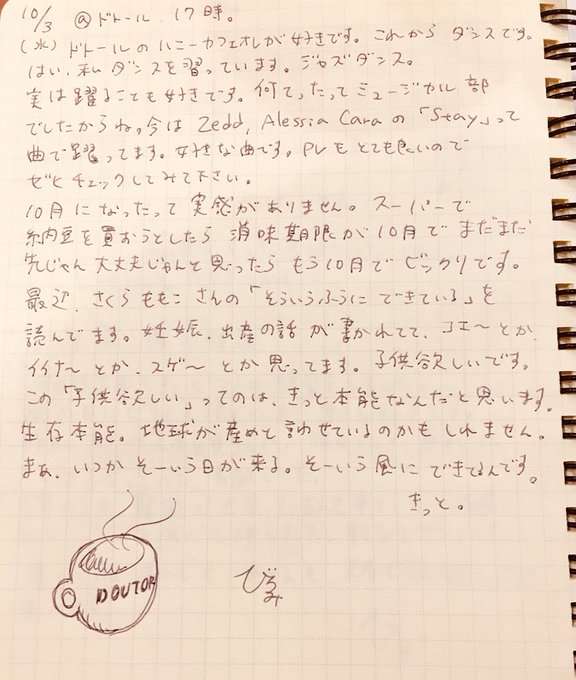 10/3 @ドトール. 17時。
(水) ドトールのハニーカフェオレが好きです。これからダンスです。
はい、私ダンスを習っています。ジャズダンス。
実は踊ることも好きです。何てったってミュージカル部
でしたからね。今は Zedd, Alessia Cara の「Stay」って
曲で踊ってます。好きな曲です。PVもとても良いので
ぜひチェックしてみて下さい。
10月になったって実感がありません。スーパーで
納豆を買おうとしたら消味期限が10月でまだまだ
先じゃん大丈夫じゃんと思ったらもう10月でビックリです。
最近、さくらももこさんの「そういうふうにできている」を
読んでます。妊娠、出産の話が書かれてて、コエ〜とか、
イイナ〜とか、スゲ〜とか思ってます。子供欲しいです。
この「子供欲しい」ってのは、きっと本能なんだと思います。
生存本能。地球が産めと言わせているのかもしれません。
まぁ、いつかそーいう日が来る。そーいう風にできてるんです。
きっと。
DOUTOR